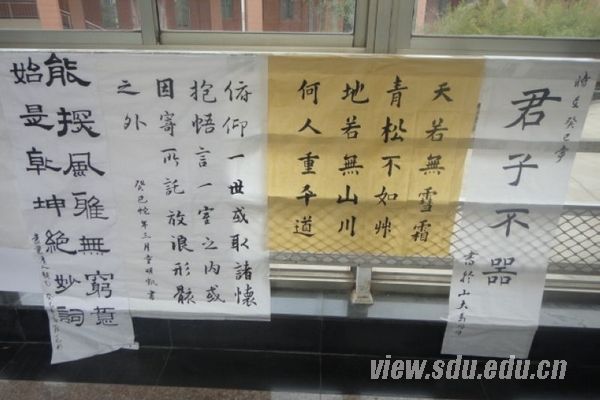 癸巳
君子不器
書於山大
天若無雪霜
青松不如艸
地若無山川
何人重平道
俯仰一世或取諸懷
抱悟言一室之內或
因寄所託放浪形骸
之外
癸巳蛇年三月 明凱書
能探風雅無窮意
始是乾坤絕妙詞
view.sdu.edu.cn